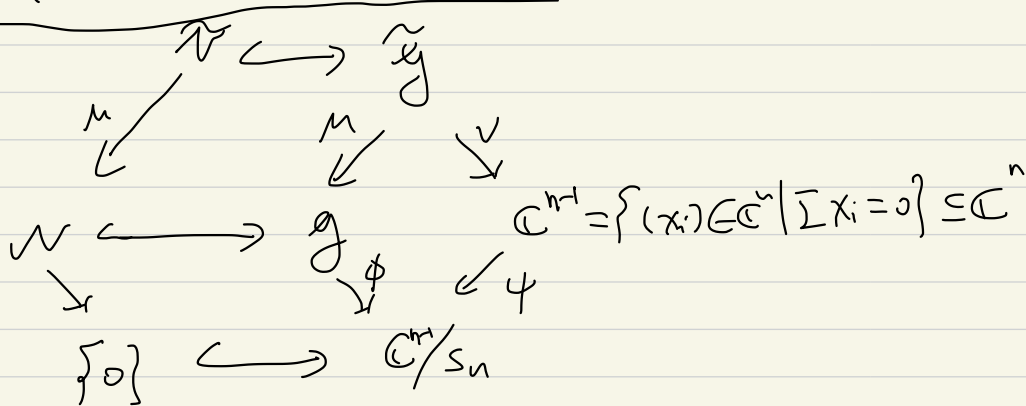 Ñ ↩→ g̃
μ μ ν
N ↩→ g ℂⁿ⁻¹ = {(xᵢ)∈ℂⁿ | Σxᵢ = 0} ⊆ ℂⁿ
φ ψ
{0} ↩→ ℂⁿ⁻¹/Sₙ